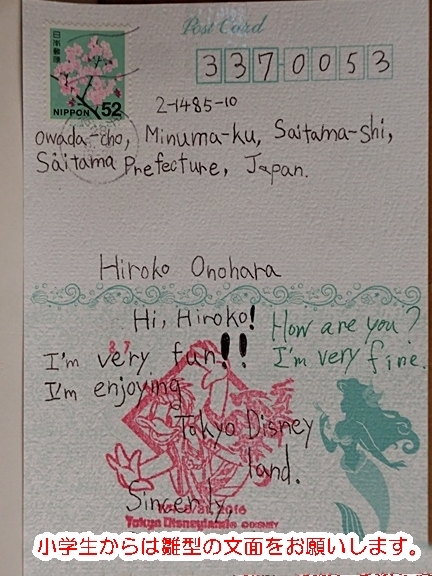 日本郵便
NIPPON 52
Post Card
3370053
2-1485-10
owada-cho, Minuma-ku, Saitama-shi,
Saitama Prefecture, Japan.
Hiroko Onohara
Hi, Hiroko!
How are you?
I'm very fun!!
I'm very fine.
I'm enjoying
Tokyo Disney
land.
Sincerly,
Tokyo Disneyland © DISNEY
小学生からは雛型の文面をお願いします。